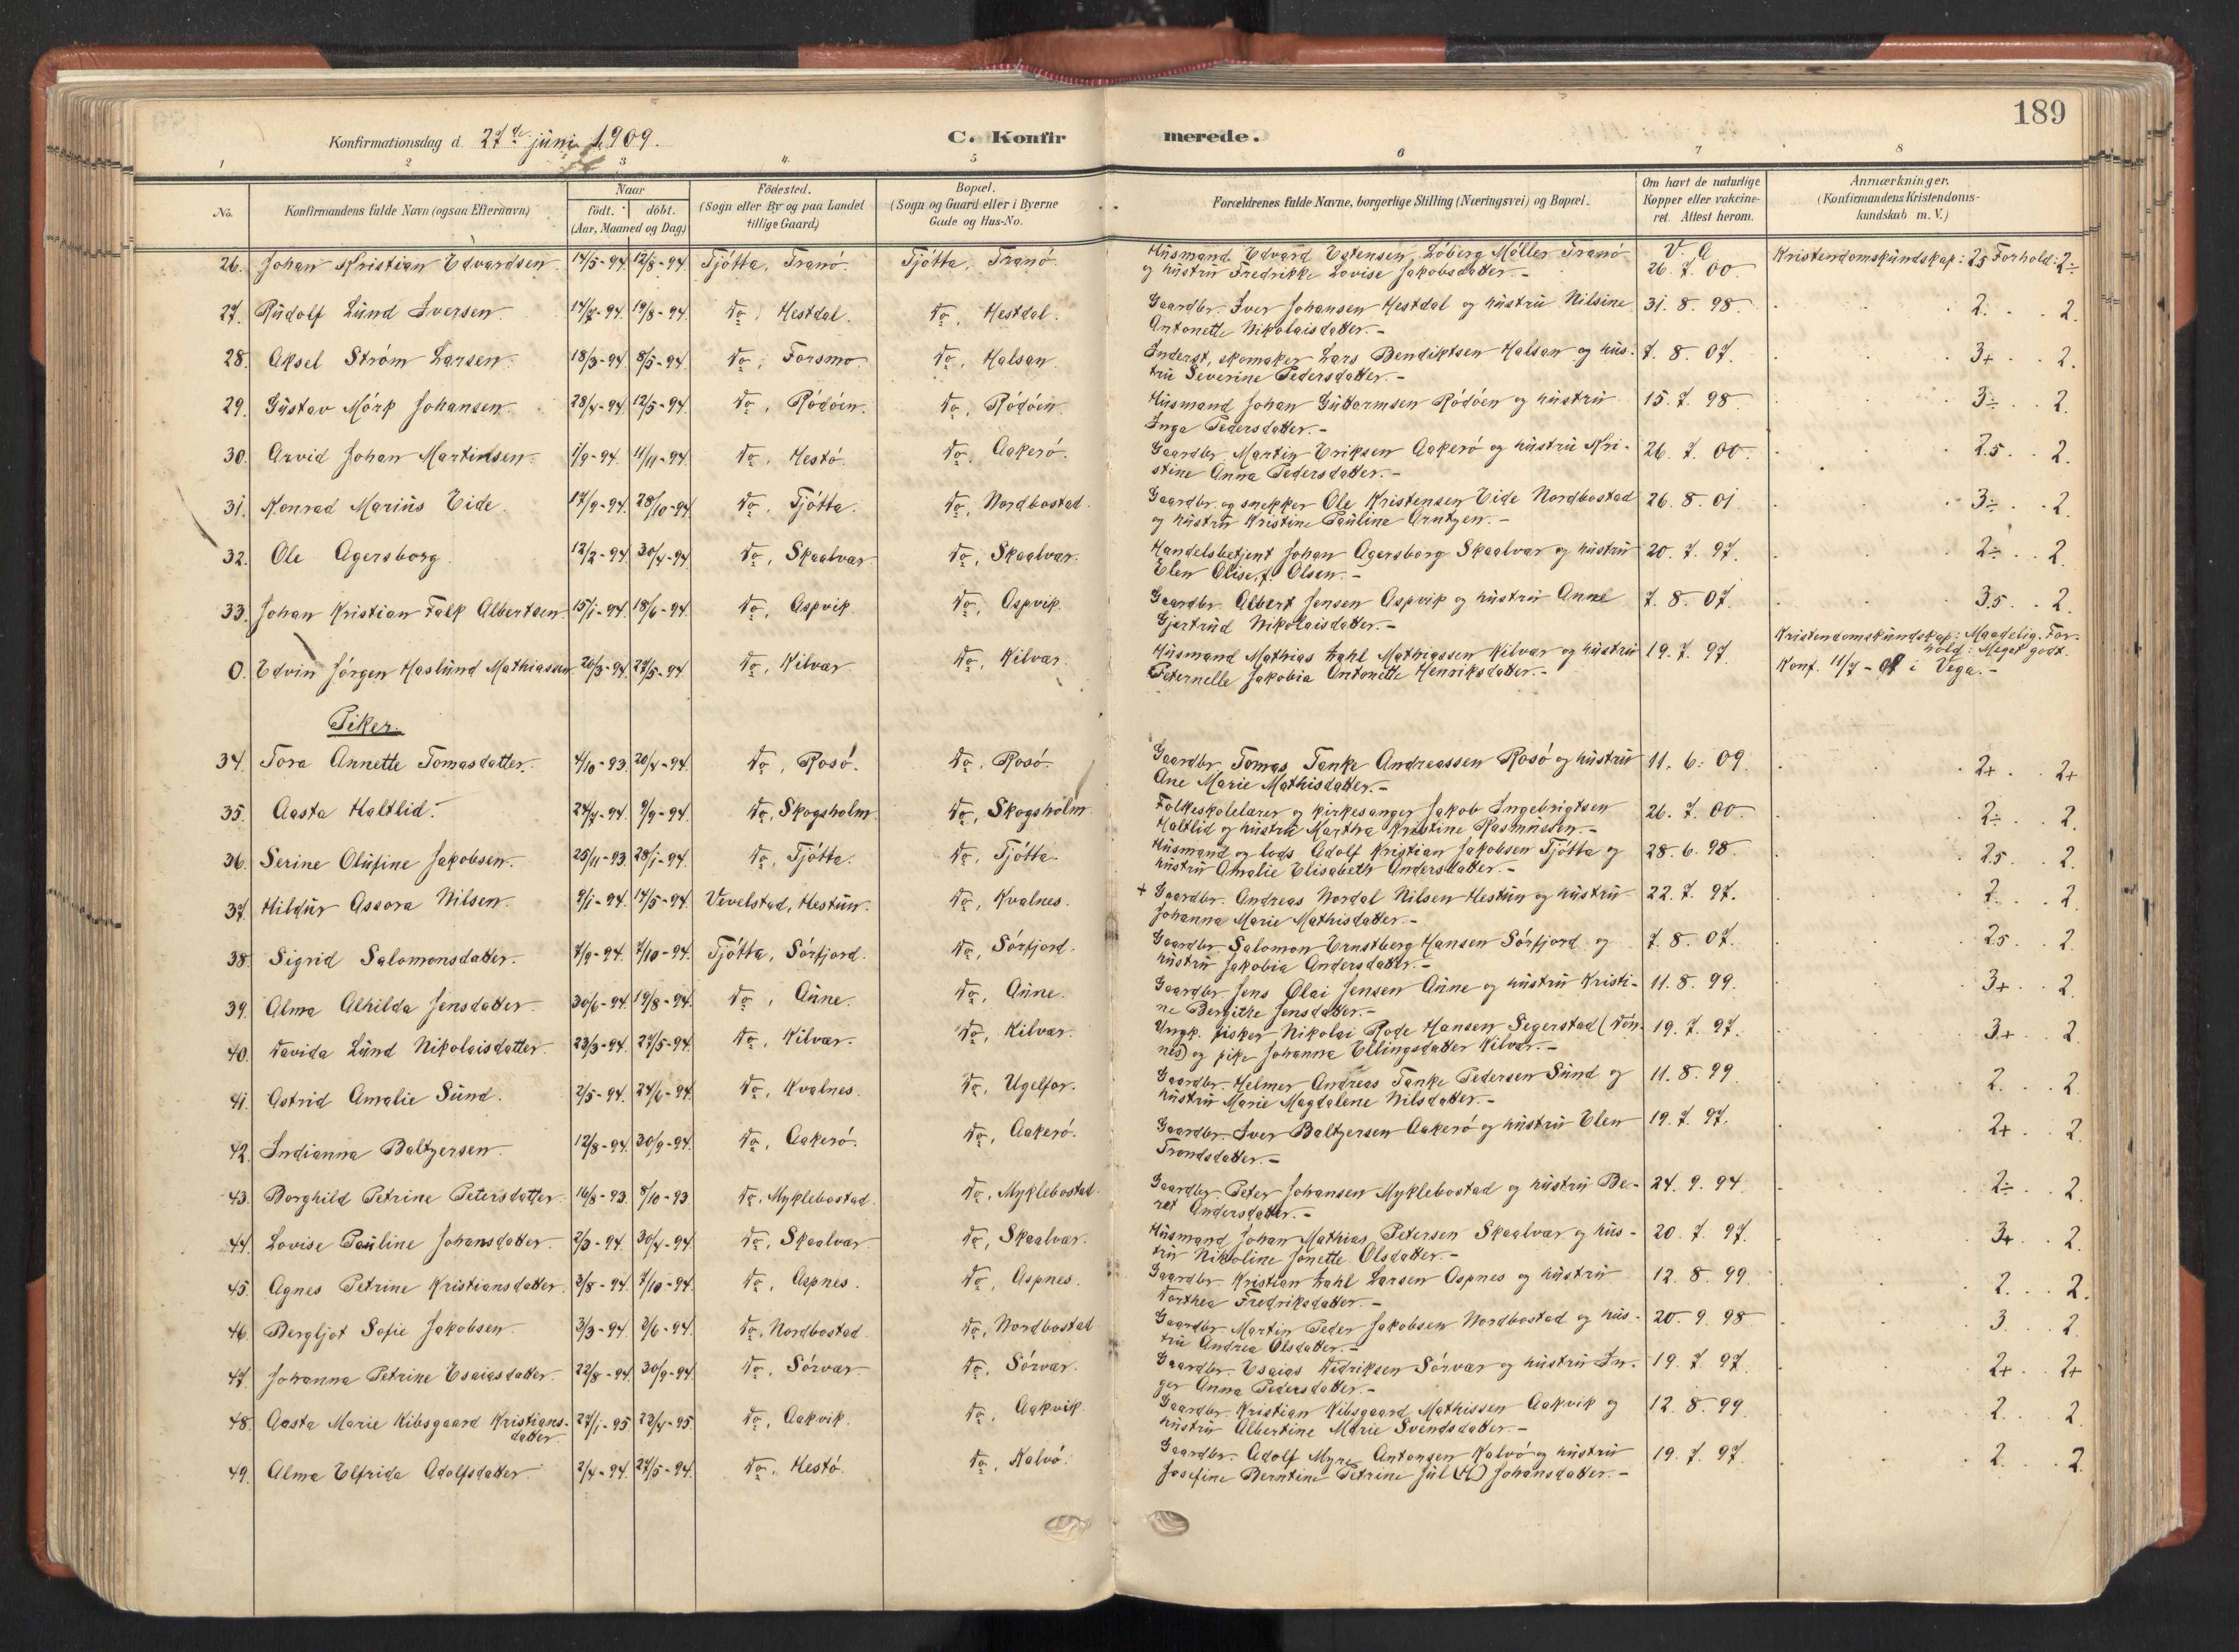 189
Konfirmationsdag d. 27de juni 1909.
C. Konfirmerede.
1 2 3 4 5 6 7 8
No. Konfirmandens fulde Navn (ogsaa Efternavn) Naar født. døbt. (Aar, Maaned og Dag) Fødested. (Sogn eller By og paa Landet tillige Gaard) Bopæl. (Sogn og Gaard eller i Byerne Gade og Hus-No. Forældrenes fulde Navne, borgerlige Stilling (Næringsvei) og Bopæl. Om havt de naturlige Kopper eller vakcineret. Attest herom. Anmærkninger. (Konfirmandens Kristendomskundskab m. V.)
26. Johan Kristian Edvardsen. 14/5-94. 12/8-94. Tjøtta, Tranø. Tjøtta, Tranø. Husmand Edvard Løberg Møller Tranø V. A. Kristendomskundskap: 2,5 Forhold: 2÷
og hustru Fredrikke Lovise Jakobsdatter.- 26. 7. 00.
27. Rudolf Lund Iversen. 14/7-94. 19/8-94. Do, Hestdal. Do, Hestdal. Gaardbr. Iver Johansen Hestdal og hustru Nilsine 31. 8. 98. 2. 2.
Antonette Nikolaisdatter.-
28. Aksel Strøm Larsen. 18/3-94. 8/5-94. Do, Forsmo. Do, Halsan. Inderst, skomaker Lars Bendiktsen Halsan og hus- 7. 8. 07. 3+ 2.
tru Severine Pedersdatter.-
29. Gustav Mørk Johansen. 28/4-94. 12/5-94. Do, Rødøen. Do, Rødøen. Husmand Johan Guttormsen Rødøen og hustru 15. 7. 98. 3÷ 2.
Inga Pedersdatter.-
30. Arvid Johan Martinsen. 1/9-94. 11/11-94. Do, Hestø. Do, Aakerø. Gaardbr. Martin Eriksen Aakerø og hustru Kri- 26. 7. 00. 2.5 2.
stine Anna Pedersdatter.-
31. Konrad Marius Eide. 17/9-94. 28/10-94. Do, Tjøtta. Do, Nordbostad. Gaardbr. og snekker Ole Kristensen Eide Nordbostad 26. 8. 01. 3÷ 2.
og hustru Kristine Pauline Arntzen.-
32. Ole Agersborg. 12/2-94. 30/4-94. Do, Skaalvær. Do, Skaalvær. Handelsbetjent Johan Agersborg Skaalvær og hustru 20. 7. 97. 2÷ 2.
Elen Olise, f. Olsen.-
33. Johan Kristian Falk Albertsen. 15/1-94. 18/6-94. Do, Aspvik. Do, Aspvik. Gaardbr. Albert Jensen Aspvik og hustru Anne 7. 8. 07. 3.5 2.
Gjertrud Nikolaisdatter.-
0. Edvin Jørgen Haslund Mathiassen. 20/3-94. 27/5-94. Do, Kilvær. Do, Kilvær. Husmand Mathias Zahl Mathiassen Kilvær og hustru 19. 7. 97. Kristendomskundskap: Maadelig. For-
hold: Meget godt.
Peternelle Jakobia Antonette Henriksdatter.- Konf. 11/7 - 09 i Vega.-
Piker.
34. Tora Annette Tomasdatter. 4/10-93. 20/4-94. Do, Rosø. Do, Rosø. Gaardbr. Tomas Tanke Andreassen Rosø og hustru 11. 6. 09. 2+ 2+
Ane Marie Mathisdatter.-
35. Aasta Haltlid. 24/7-94. 9/9-94. Do, Skogsholm. Do, Skogsholm. Folkeskolelærer og kirkesanger Jakob Ingebrigtsen 26. 7. 00. 2÷ 2.
Haltlid og hustru Martha Kristine Rasmussen.-
36. Serine Olufine Jakobsen. 25/11-93. 28/1-94. Do, Tjøtta. Do, Tjøtta. Husmand og lods Adolf Kristian Jakobsen Tjøtta og 28. 6. 98. 2.5 2.
hustru Amalie Elisabeth Andersdatter.-
37. Hildur Assora Nilsen. 9/1-94. 14/5-94. Vevelstad, Hestun. Do, Kvalnes. + Gaardbr. Andreas Nordal Nilsen Hestun og hustru 22. 7. 97. 2. 2.
Johanna Marie Mathisdatter.-
38. Sigrid Salomonsdatter. 7/9-94. 7/10-94. Tjøtta, Sørfjord. Do, Sørfjord. Gaardbr. Salomon Ernstberg Hansen Sørfjord og 7. 8. 07. 2.5 2.
hustru Jakobia Andersdatter.-
39. Alma Alhilda Jensdatter. 30/6-94. 19/8-94. Do, Aune. Do, Aune. Gaardbr. Jens Olai Jensen Aune og hustru Kristi- 11. 8. 99. 3+ 2.
ne Bergithe Jensdatter.-
40. Davida Lund Nikolaisdatter. 23/3-94. 27/5-94. Do, Kilvær. Do, Kilvær. Ungk. fisker Nikolai Rode Hansen Segerstad (Døn- 19. 7. 97. 3+ 2.
nes) og pike Johanna Ellingsdatter Kilvær.-
41. Astrid Amalie Sund. 2/5-94. 24/6-94. Do, Kvalnes. Do, Ugelfor. Gaardbr. Helmer Andreas Tanke Pedersen Sund og 11. 8. 99. 2. 2.
hustru Marie Magdalene Nilsdatter.-
42. Indianna Baltzersen. 12/8-94. 30/9-94. Do, Aakerø. Do, Aakerø. Gaardbr. Iver Baltzersen Aakerø og hustru Elen 19. 7. 97. 2+ 2.
Trondsdatter.-
43. Borghild Petrine Petersdatter. 16/8-93. 8/10-93. Do, Myklebostad. Do, Myklebostad. Gaardbr. Peter Johansen Myklebostad og hustru Be- 24. 9. 94. 2÷ 2.
ret Andersdatter.-
44. Lovise Pauline Johansdatter. 2/3-94. 30/4-94. Do, Skaalvær. Do, Skaalvær. Husmand Johan Mathias Petersen Skaalvær og hus- 20. 7. 97. 3+ 2.
tru Nikoline Jonette Olsdatter.-
45. Agnes Petrine Kristiansdatter. 3/8-94. 7/10-94. Do, Aspnes. Do, Aspnes. Gaardbr. Kristian Zahl Larsen Aspnes og hustru 12. 8. 99. 2. 2.
Dorthea Fredriksdatter.-
46. Bergljot Sofie Jakobsen. 3/3-94. 3/6-94. Do, Nordbostad. Do, Nordbostad. Gaardbr. Martin Peder Jakobsen Nordbostad og hus- 20. 9. 98. 3. 2.
tru Andrea Olsdatter.-
47. Johanna Petrine Esaiasdatter. 22/8-94. 30/9-94. Do, Sørvær. Do, Sørvær. Gaardbr. Esaias Didriksen Sørvær og hustru In- 19. 7. 97. 2+ 2+
ger Anna Pedersdatter.-
48. Aasta Marie Kibsgaard Kristians-
datter. 27/1-95. 22/4-95. Do, Aakvik. Do, Aakvik. Gaardbr. Kristian Kibsgaard Mathissen Aakvik og 12. 8. 99. 2. 2.
hustru Albertine Marie Svendsdatter.-
49. Alma Elfrida Adolfsdatter. 2/4-94. 27/5-94. Do, Hestø. Do, Kalvø. Gaardbr. Adolf Myre Antonsen Kalvø og hustru 19. 7. 97. 2. 2.
Josefine Berntine Petrine Jul (H) Johansdatter.-